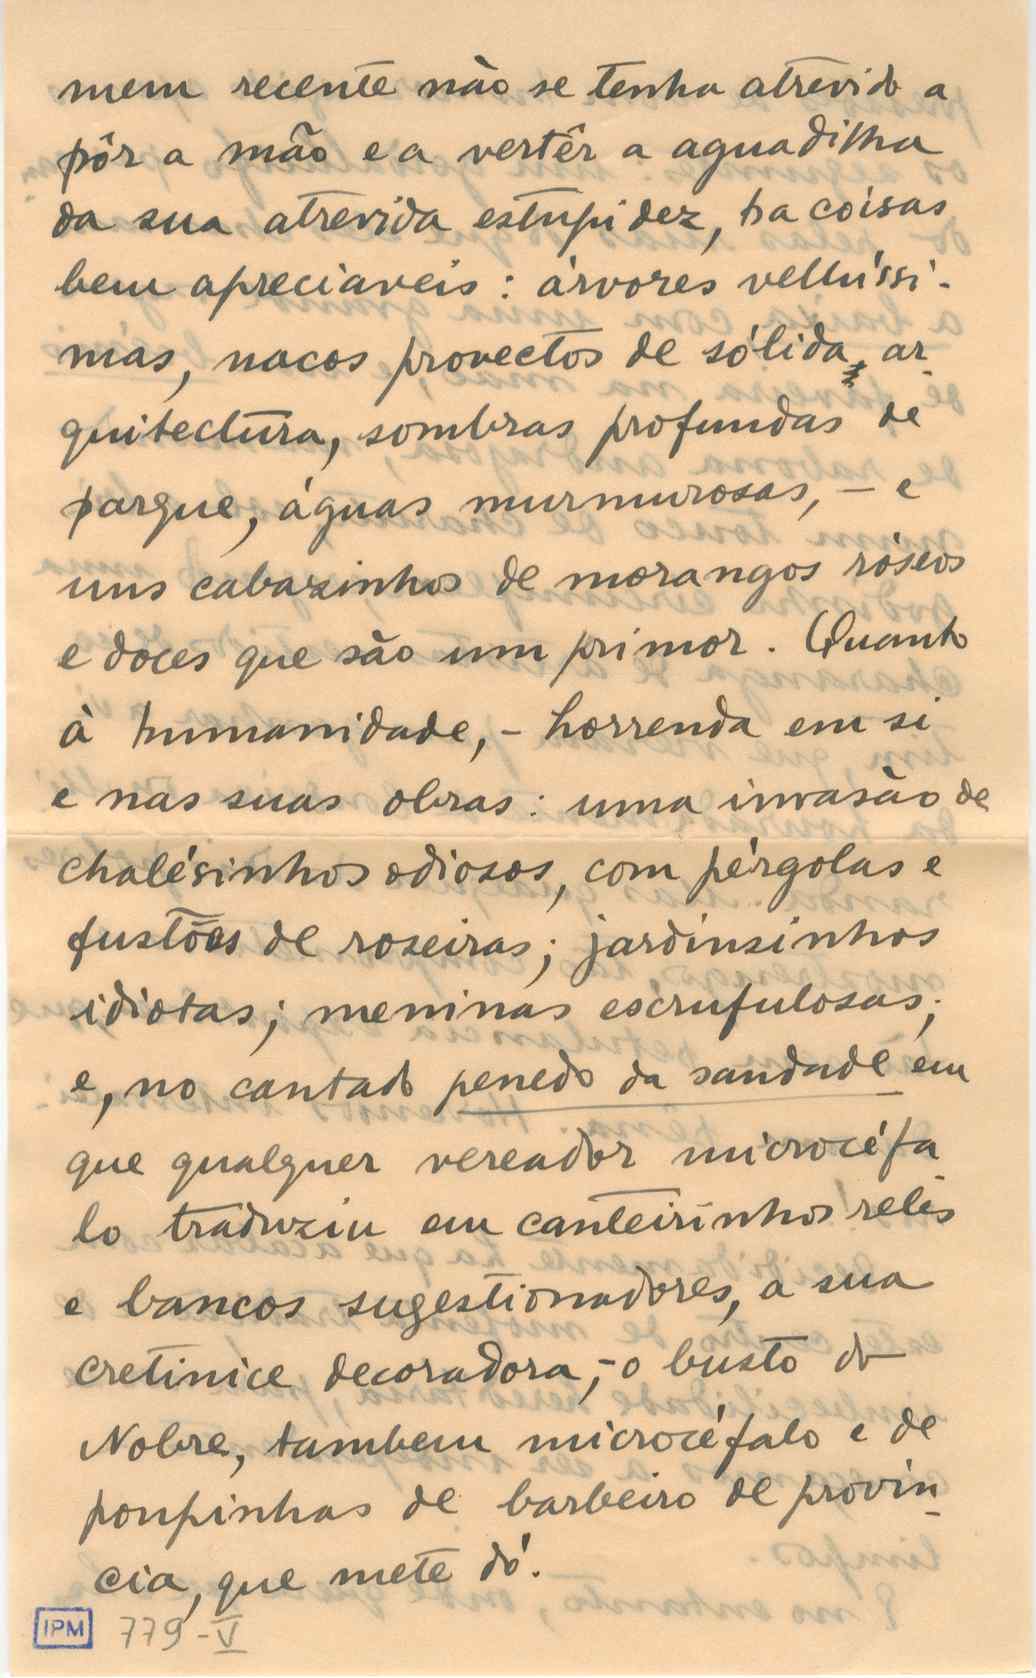 mem recente não se tenha atrevido a
pôr a mão e a vertêr a aguadilha
da sua atrevida estupidez, ha coisas
bem apreciaveis: árvores velhíssi-
mas, nacos provectos de sólida ar-
quitectura, sombras profundas de
parque, águas murmurosas, – e
uns cabazinhos de morangos róseos
e doces que são um primor. Quanto
à humanidade, – horrenda em si
e nas suas obras: uma invasão de
chalésinhos odiosos, com pérgolas e
fustões de roseiras; jardinsinhos
idiotas; meninas escrufulosas;
e, no cantado penedo da saudade em
que qualquer vereador microcéfa
lo traduziu em canteirinhos relés
e bancos sugestionadores, a sua
cretinice decoradora, – o busto do
Nobre, tambem microcéfalo e de
poupinhas de barbeiro de provín-
cia, que mete dó.
IPM 779-V